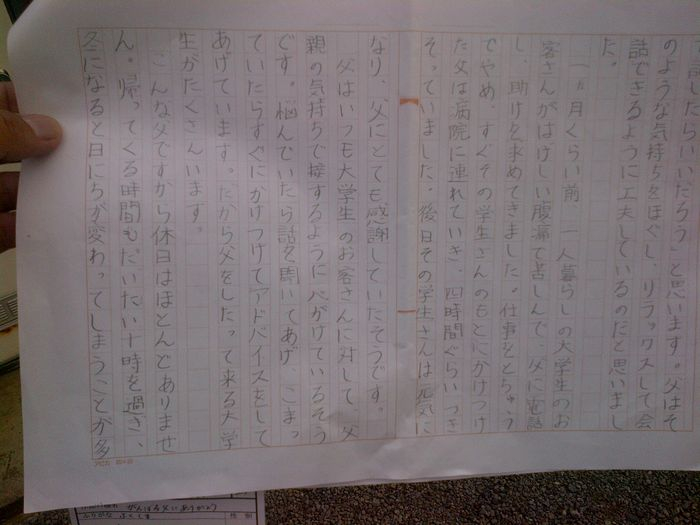 話したらいいだろう」と思います。父はそ
のような気持ちをほぐし、リラックスして会
話できるように工夫しているのだと思いまし
た。
一ヵ月くらい前、一人暮らしの大学生のお
客さんがはげしい腹痛で苦しんで、父に電話
し、助けを求めてきました。仕事をとちゅう
でやめ、すぐその学生さんのもとにかけつけ
た父は病院に連れていき、四時間ぐらいつき
そっていました。後日その学生さんは元気に
なり、父にとても感謝していたそうです。
父はいつも大学生のお客さんに対して、父
親の気持ちで接するように心がけているそう
です。悩んでいたら話を聞いてあげ、こまっ
ていたらすぐにかけつけてアドバイスをして
あげています。だから父をしたって来る大学
生がたくさんいます。
こんな父ですから休日はほとんどありませ
ん。帰ってくる時間もだいたい十時を過ぎ、
冬になると日にちが変わってしまうことが多
がんばる父にありがとう
ふりがな
性別